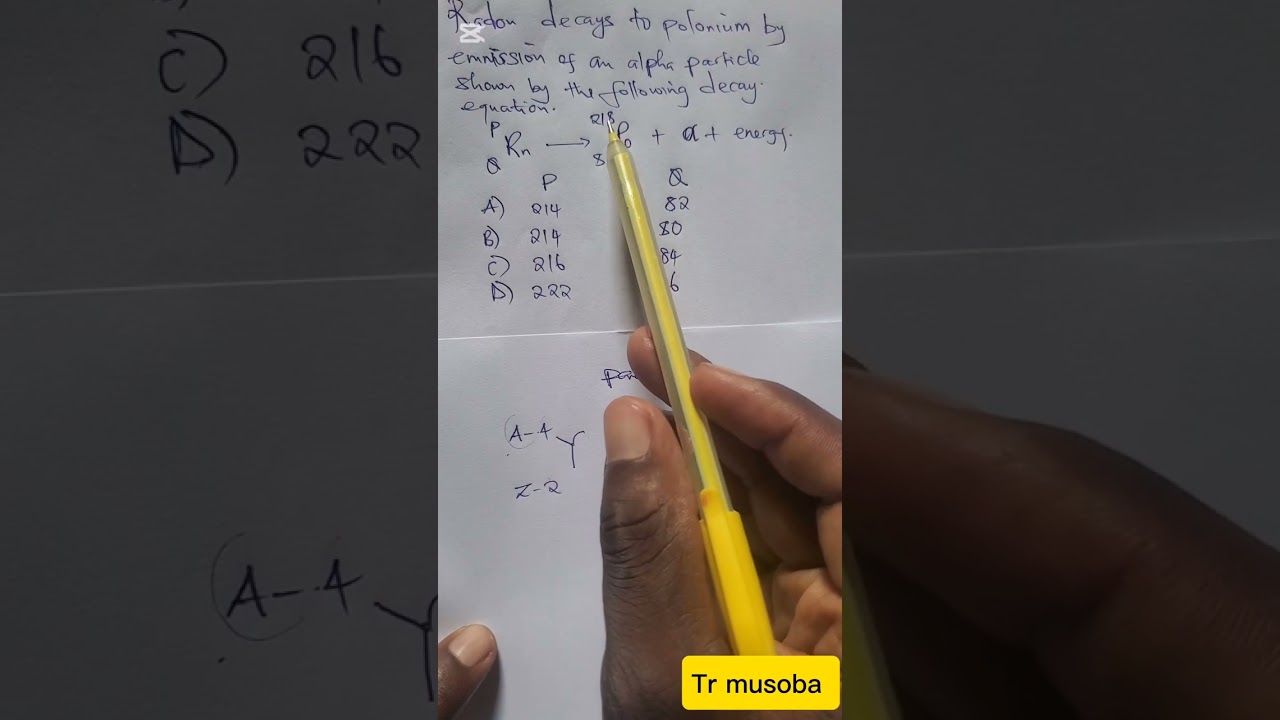 Radon decays to polonium by
emmission of an alpha particle
shown by the following decay
equation.
P 218
Rn → Po + α + energy.
Q 8
P Q
A) 214 82
B) 214 80
C) 216 84
D) 222 6
A-4 Y
Z-2
Tr musoba
C) 216
D) 222
A-4 Y